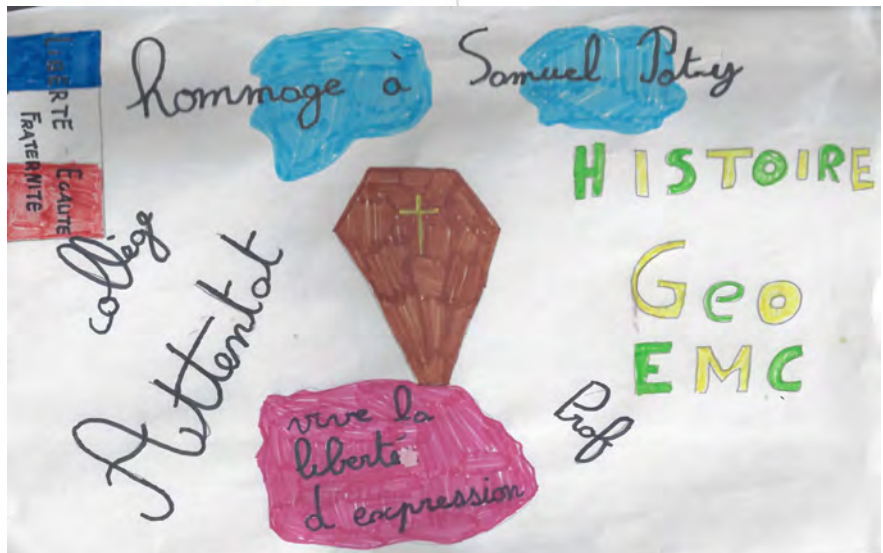 LIBERTE - EGALITE
FRATERNITE
hommage à Samuel Paty
HISTOIRE
collège
Attentat
Geo
EMC
Prof
vive la
liberté
d expression